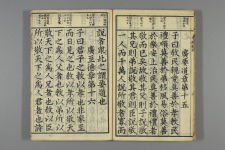 廣要道章第十五
子曰教民親愛莫善於孝教民
禮順莫善於弟移風易俗莫善
於樂安上治民莫善於禮禮者
敬而已矣故敬其父則子說敬
其兄則弟說敬其君則臣說敬
一人而千萬人說所敬者寡而
說者衆此之謂要道也
廣至德章第十六
子曰君子之教以孝也非家至
而日見之也教以孝所以敬天
下之爲人父者也教以弟所以
敬天下之爲人兄者也教以臣
所以敬天下之爲人君者也詩